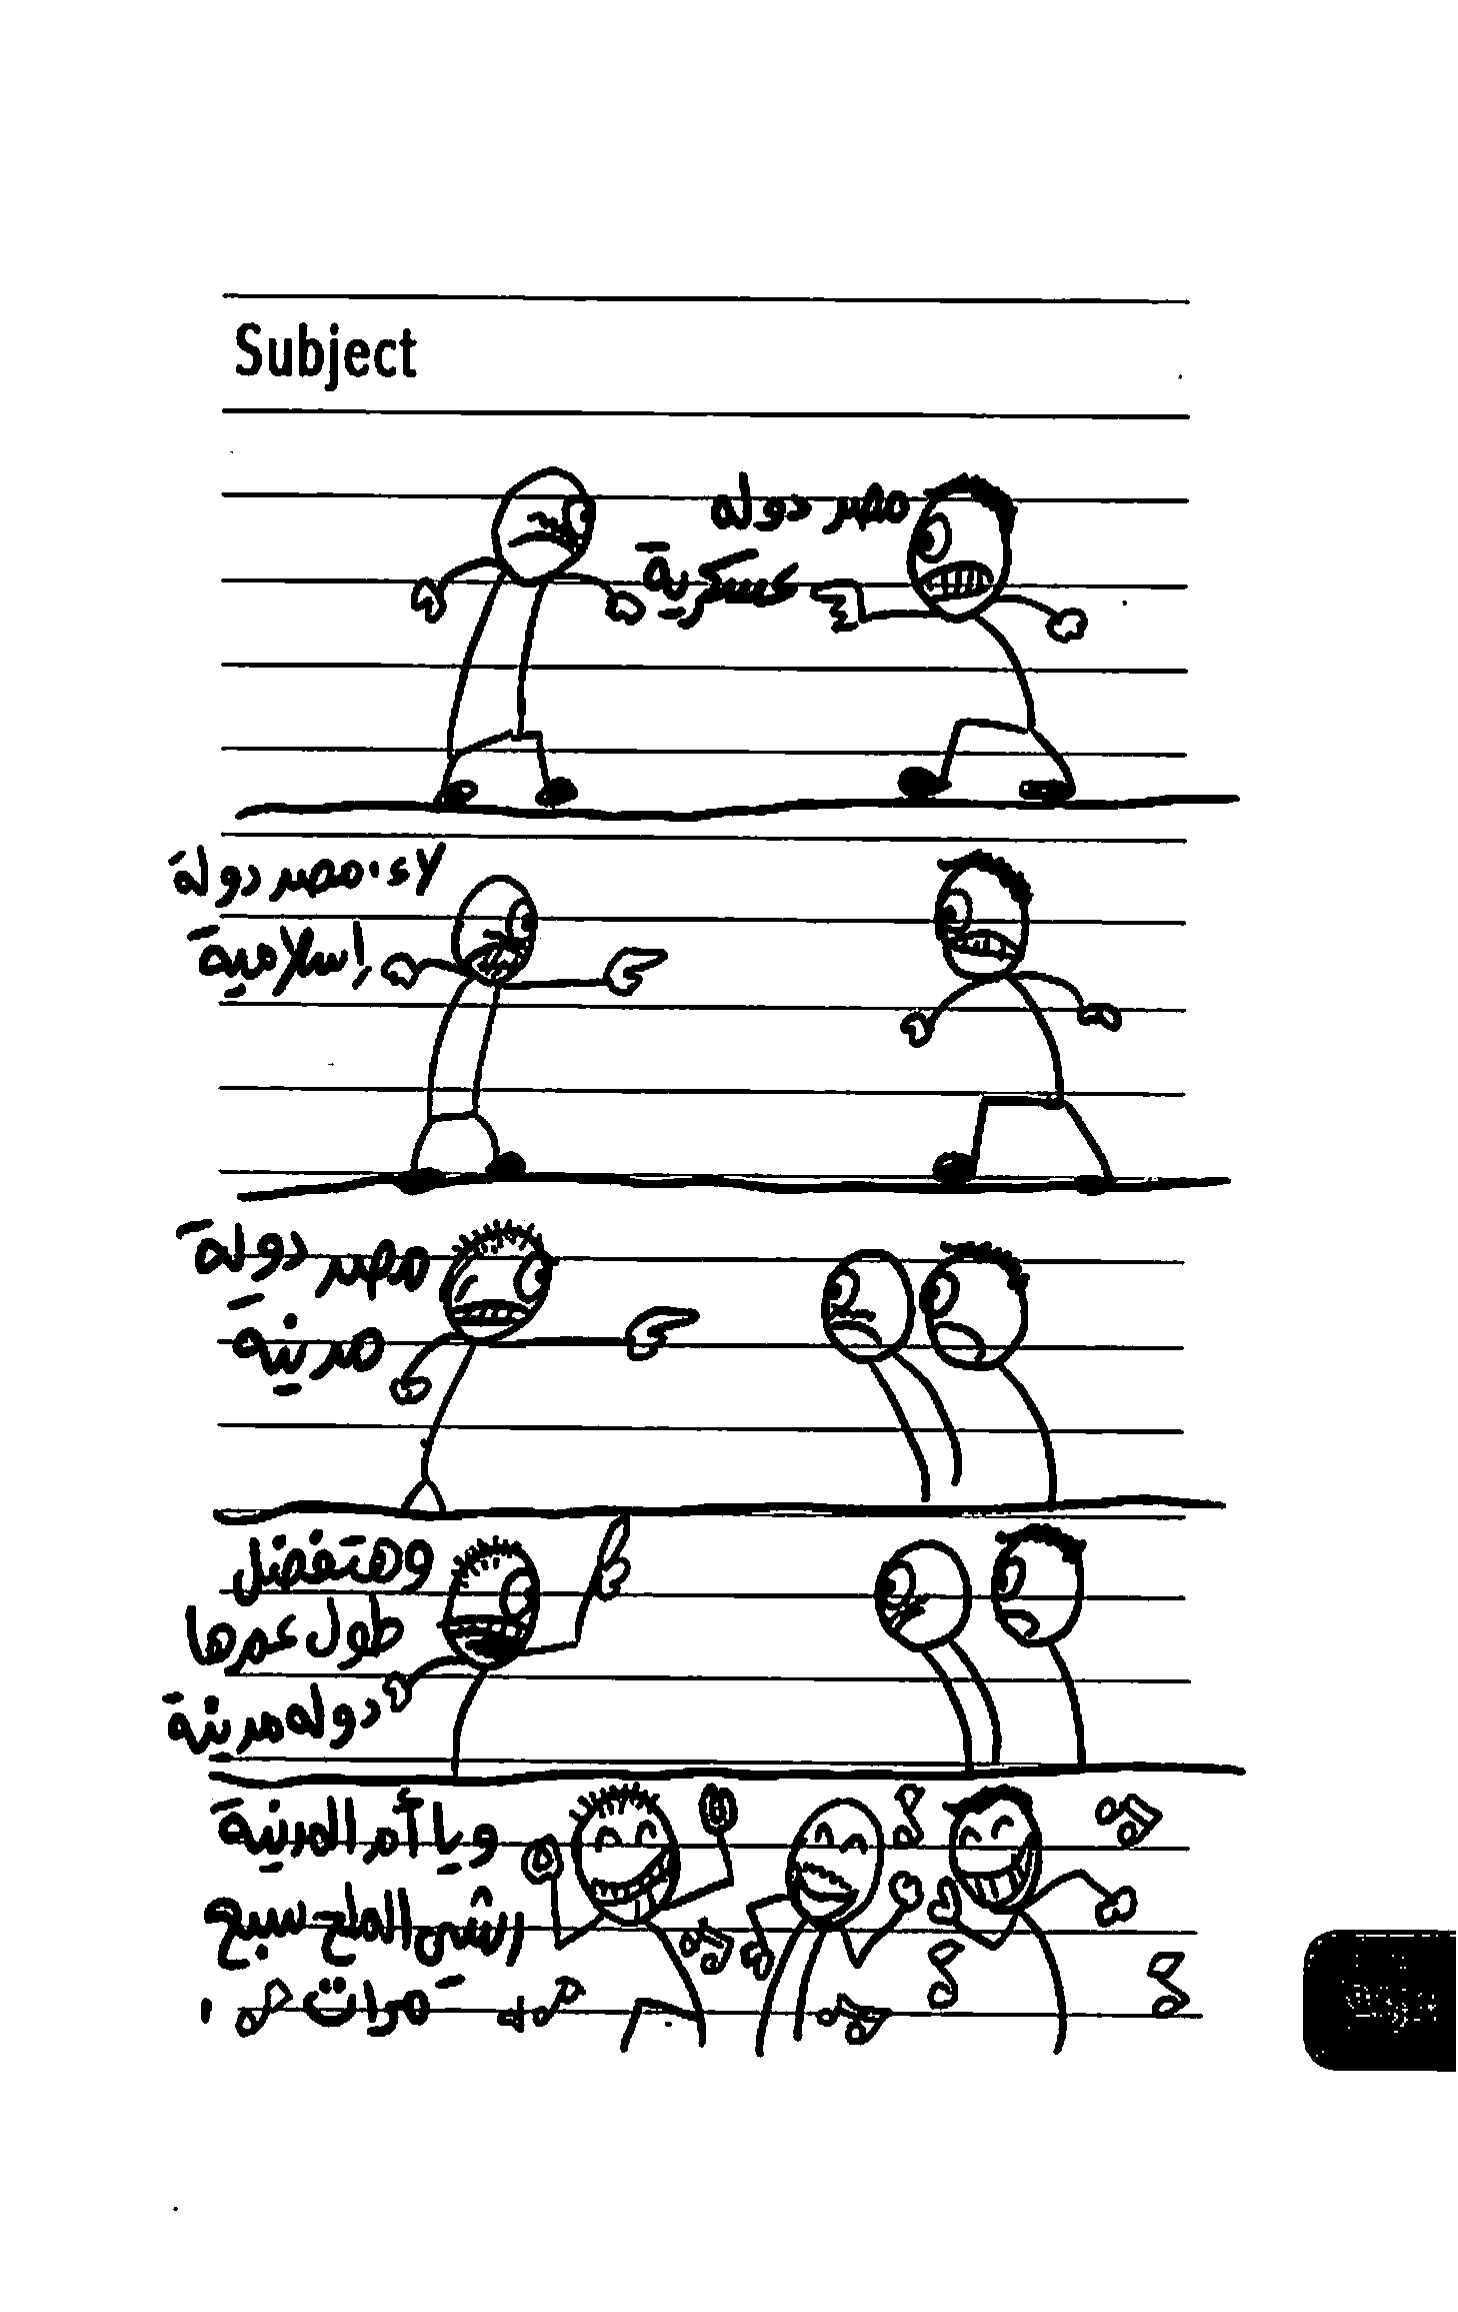 Subject
مصر دوله
عسكرية
لاء. مصر دولة
إسلامية
مصر دولة
مدنية
وهتفضل
طول عمرها
دوله مدنية
ويا أم المدنية
رشي الملح سبع
مرات